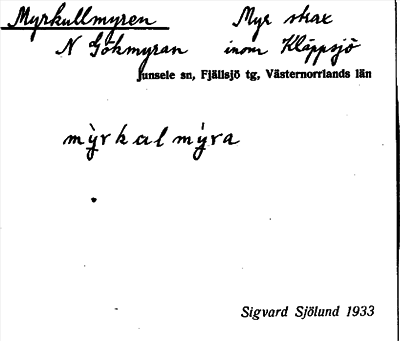 Myrkullmyren Myr strax
N Gökmyran inom Kläppsjö
Junsele sn, Fjällsjö tg, Västernorrlands län
mỳrkalmýra
Sigvard Sjölund 1933